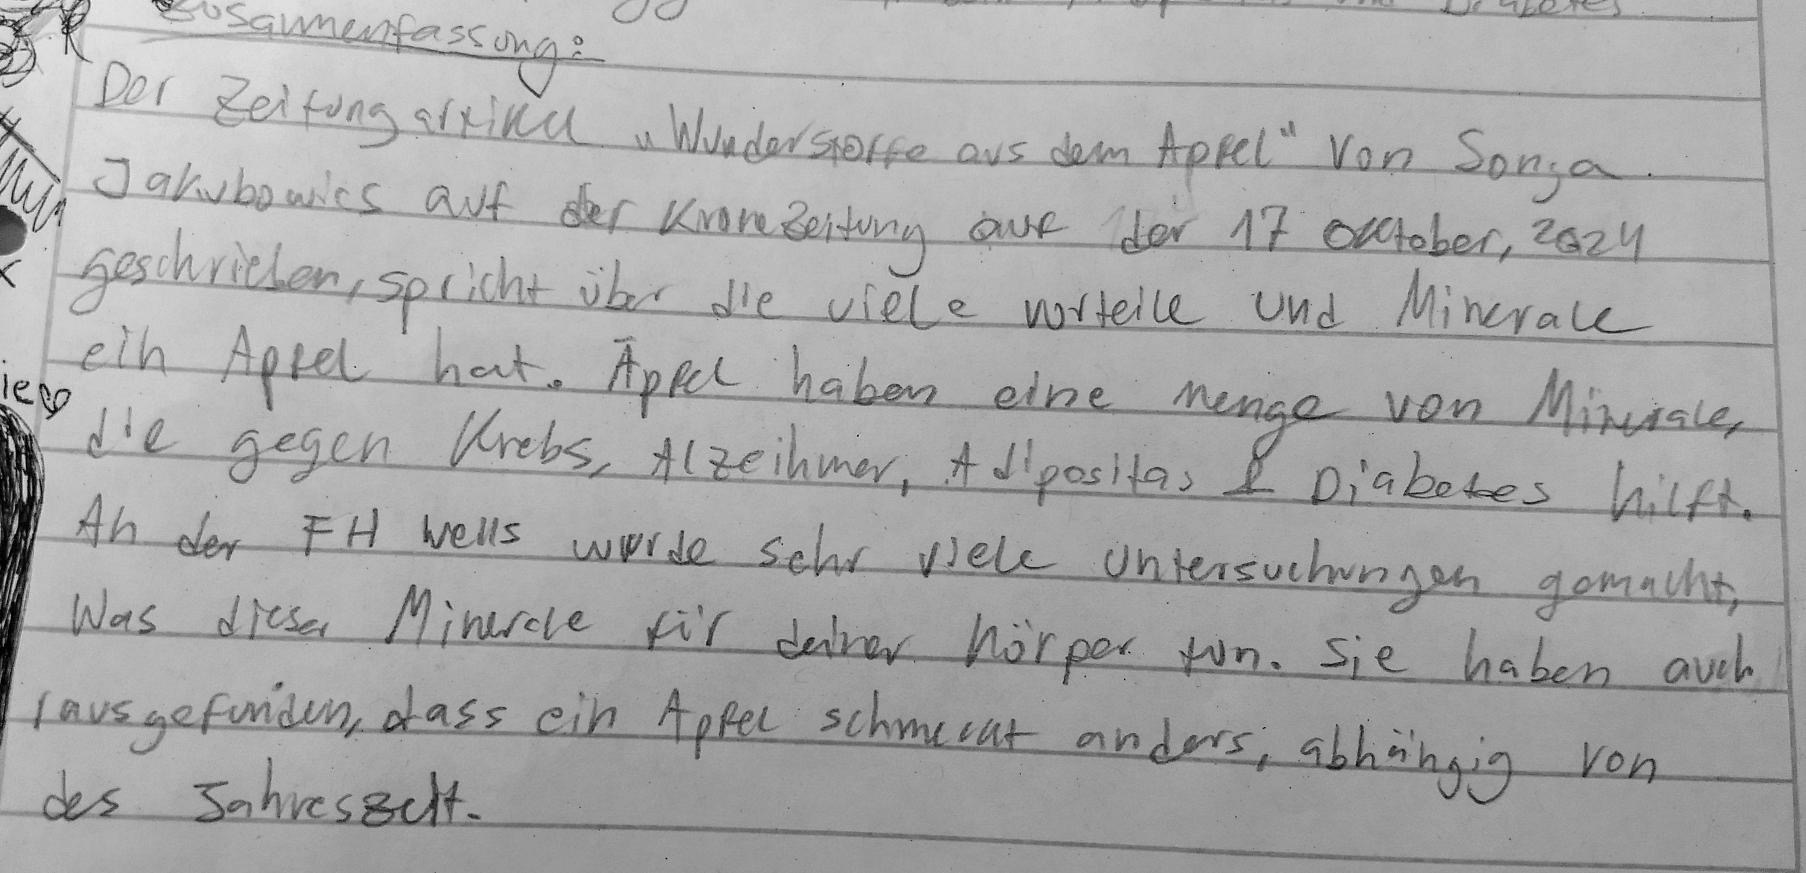 Diabetes
Zusammenfassung:
Der Zeitungartikel „Wunderstoffe aus dem Apfel" von Sonja
Jakubowics auf der Kronezeitung auf der 17 Oktober, 2024
geschrieben, spricht über die viele vorteile und Minerale
ein Apfel hat. Äpfel haben eine menge von Minerale,
die gegen Krebs, Alzeihmer, Adipositas & Diabetes hilft.
An der FH wells wurde sehr viele untersuchungen gemacht,
Was dieser Minerale für deiner Körper tun. Sie haben auch
rausgefunden, dass ein Apfel schmeckt anders, abhängig von
des Jahreszeit.